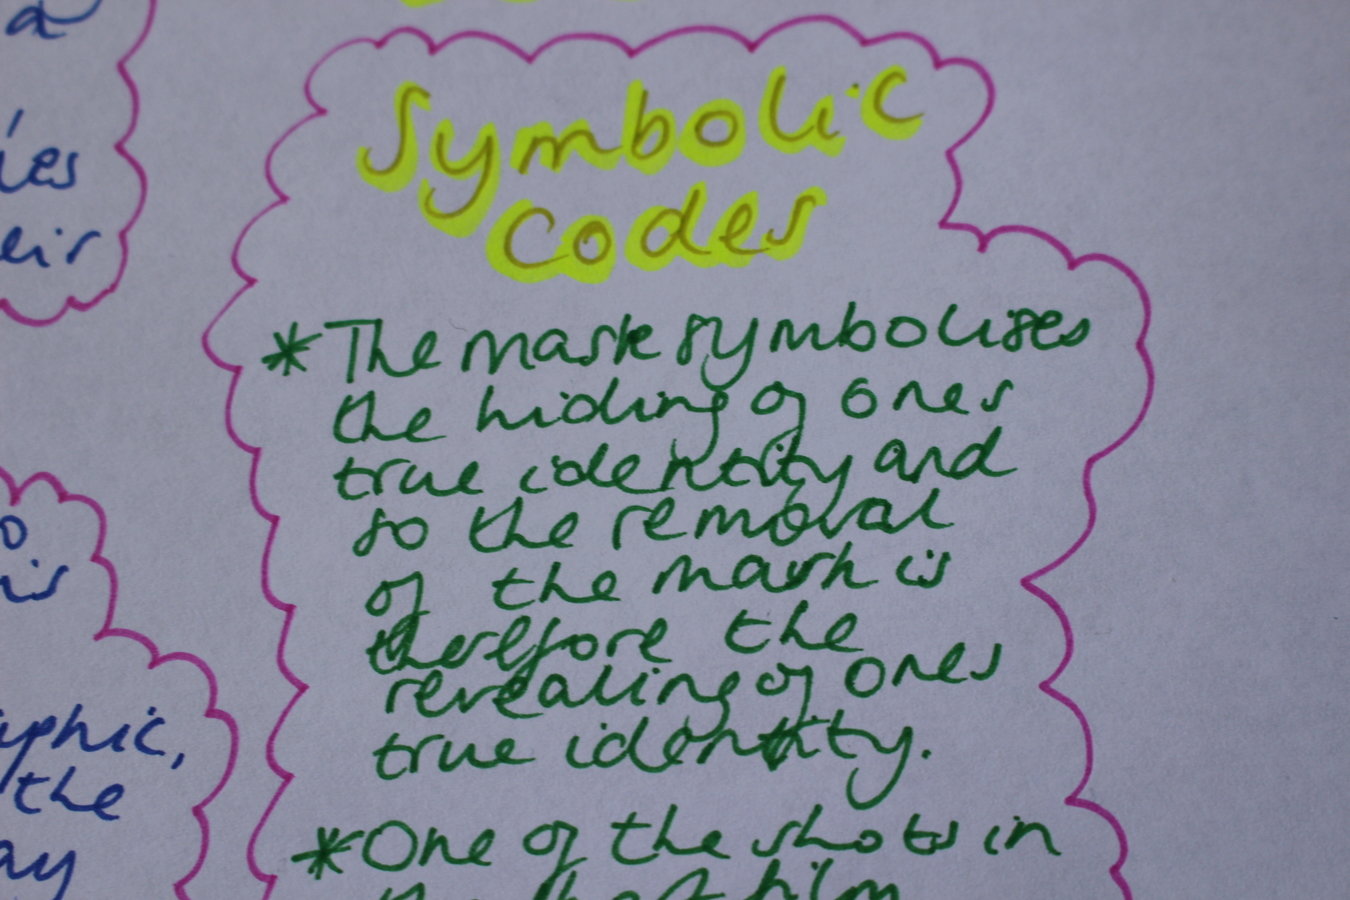 a
ies
eir
o
is
aphic,
the
ay
Symbolic
Codes
* The mask symbolises
the hiding of ones
true identity and
so the removal
of the mask is
therefore the
revealing of ones
true identity.
* One of the shots in
the short film